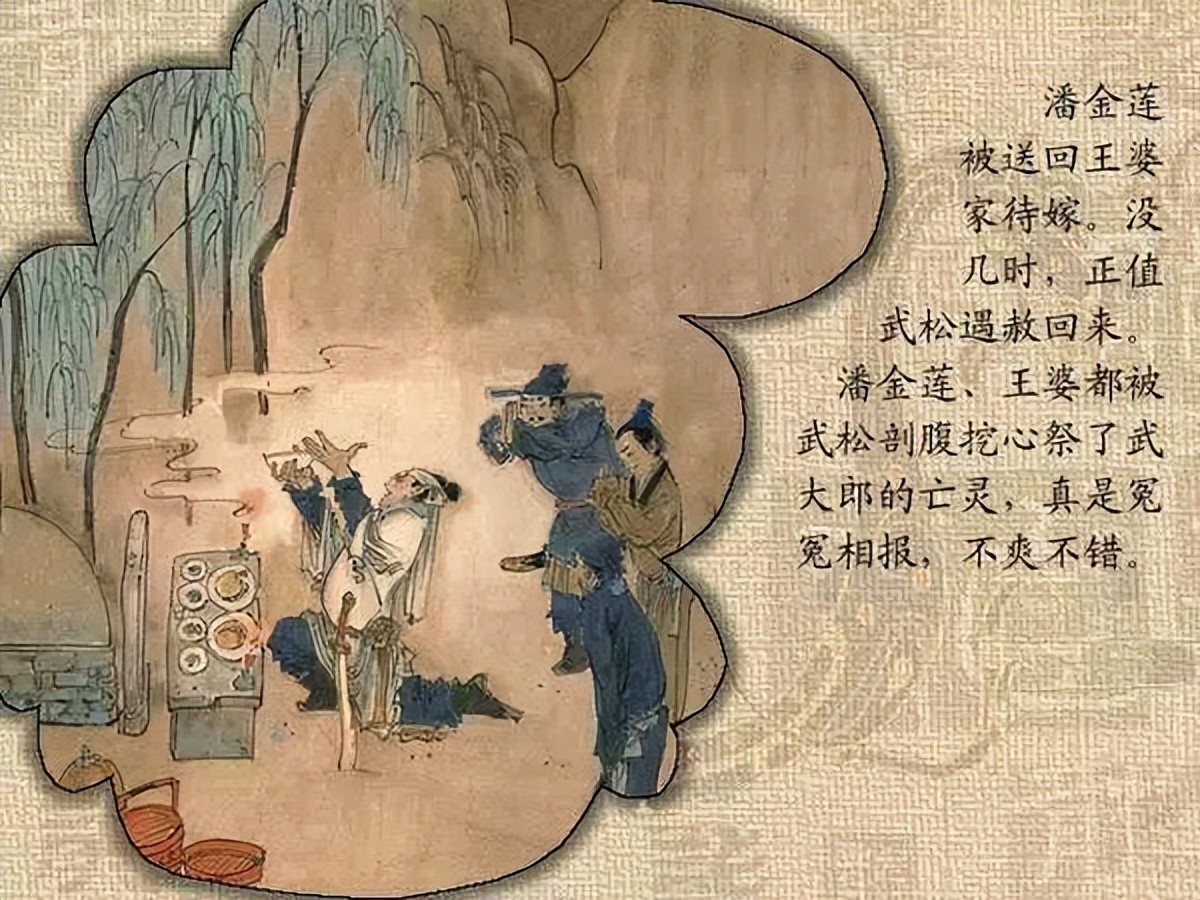 潘金莲
被送回王婆
家待嫁。没
几时，正值
武松遇赦回来。
潘金莲、王婆都被
武松剖腹挖心祭了武
大郎的亡灵，真是冤
冤相报，不爽不错。